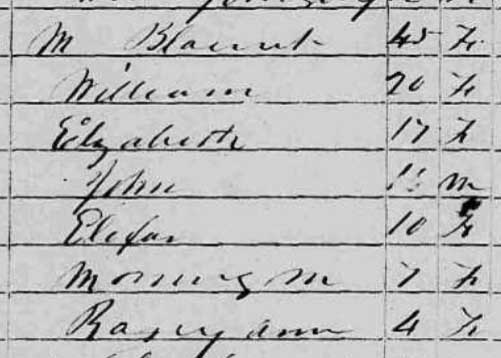 M Blount 45 F
William 20 F
Elizabeth 17 F
John m
Elefar 10 F
Morning M 7 F
Rosey ann 4 F